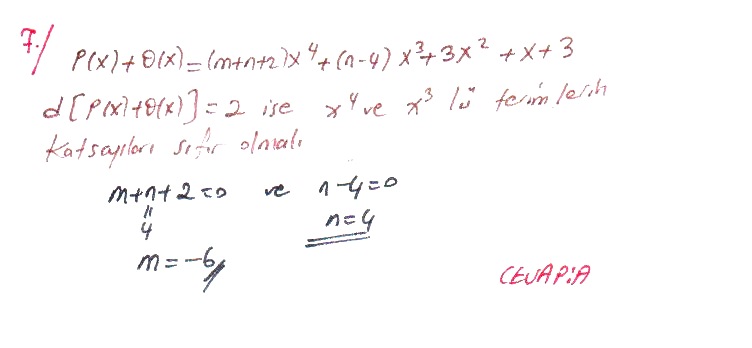 7./ P(x)+Q(x)=(m+n+2)x⁴+(n-4)x³+3x²+x+3
d[P(x)+Q(x)]=2 ise x⁴ ve x³ lü terimlerin
katsayıları sıfır olmalı
m+n+2=0 ve n-4=0
=
4 n=4
m=-6
CEVAP:A